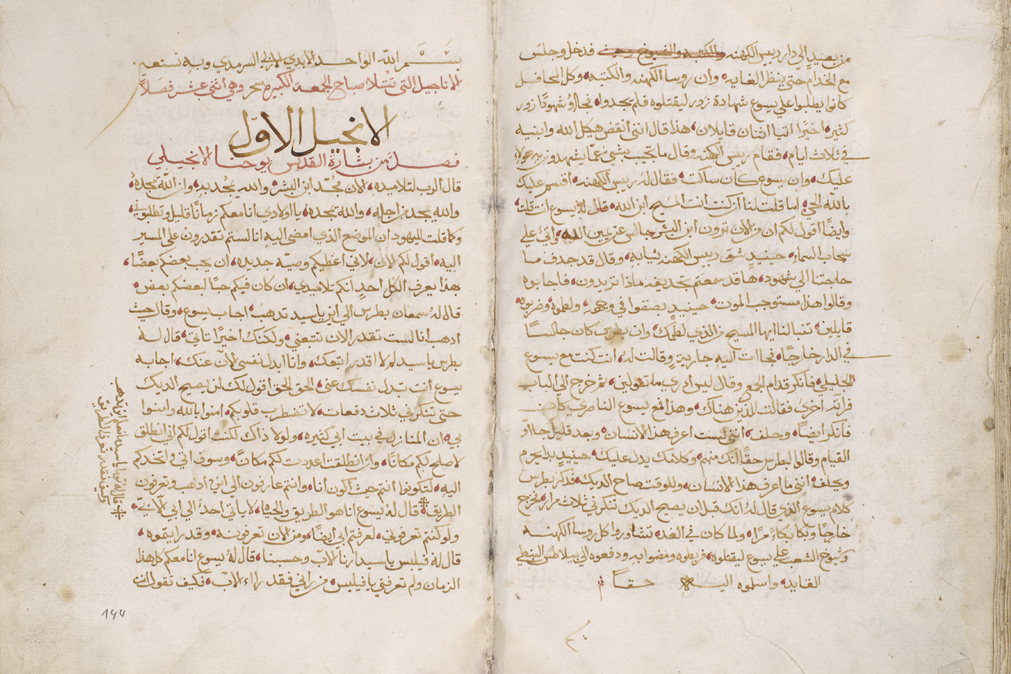 من بعيد الى دار رييس الكهنه فدخل وجلس
مع الخدام حتى ينظر الغايه وان روسا الكهنه والكتبه وكل المحافل
كانوا يطلبوا على يسوع شهادة زور ليقتلوه فلم يجدوا نجاوا شهودا زور
كثيره اخيرا اتيا اثنان قايلان هذا قال انني انقض هيكل الله وابنيه
في ثلاث ايام فقام رييس الكهنه وقال ما تجب بشي عما يشهدون به هولا
عليك وان يسوع كان ساكت فقال له رييس الكهنه اقسم عليك
بالله الحي لما قلت لنا ان كنت انت المسيح ابن الله قال له يسوع انت قلت
وايضا اقول لكم ان من الان ترون ابن البشر جالس عن يمين الله واتي على
سحاب السما حينيد شق رييس الكهنه ثيابه وقال قد جدف ما
حاجتنا الى شهود ها قد سمعتم تجديفه ماذا تريدون فاجابوه
وقالوا هذا مستوجب الموت حينيد بصقوا في وجهه ولطموه وضربوه
قايلين تنبا لنا ايها المسيح من الذي لطمك وان بطرس كان جالسا
في الدار خارجا فجات اليه جاريه وقالت له انت كنت مع يسوع
الجليلي فانكر قدام الجمع وقال ليس ادري ما تقولين ثم خرج الى الباب
فراته اخرى فقالت للذين هناك وهذا مع يسوع الناصري كان
فانكر ايضا وحلف انني لست اعرف هذا الانسان وبعد قليل جاوا
القيام وقالوا لبطرس حقا انك منهم وكلامك يدل عليك حينيد بدا يحرم
ويحلف انني ما اعرف هذا الانسان وللوقت صاح الديك فذكر بطرس
كلام يسوع الذي قال له انك قبل ان يصيح الديك تنكرني ثلاث مرار فخرج
خارجا وبكا بكاء مرا ولما كان في الغد تشاوروا كل روسا الكهنه
وشيوخ الشعب على يسوع ليقتلوه فربطوه ومضوا به ودفعوه الى بيلاطس البنطي
القايد واسلموه اليه حقا
بسم الله الواحد الابدي الازلي السرمدي وبه نستعين
الاناجيل التي تتلا صباح الجمعة الكبيره سحر وهي اثني عشر فصلا
الانجيل الاول
فصل من بشارة القديس يوحنا الانجيلي
قال الرب لتلاميذه الان مجد ابن البشر والله يمجد به وان الله يمجده
والله يمجد من اجله والله يمجده يا اولادي انا معكم زمانا قليلا وتطلبوني
وكما قلت لليهود ان الموضع الذي امضي اليه انا لستم تقدرون على المسير
اليه اقول لكم الان لانني اعطيكم وصيه جديده ان يحب بعضكم بعضا
بهذا يعرف الكل احد انكم تلاميذي ان كان فيكم حبا لبعضكم بعض
قال له سمعان بطرس الى اين يا سيد تذهب اجاب يسوع وقال حيث
اذهب انا لست تقدر الان تتبعني ولكنك اخيرا تاتي قال له
بطرس يا سيد لم لا اقدر اتبعك وانا ابدل نفسي الان عنك اجابه
يسوع انت تبدل نفسك عني الحق الحق اقول لك لن يصيح الديك
حتى تنكرني ثلاث دفعات لا تضطرب قلوبكم امنوا بالله وامنوا
بي ان المنازل في بيت ابي كثيره ولولا ذاك لكنت اقول لكم اني انطلق
لاصلح لكم مكانا وان انطلقت اعددت لكم مكانا وسوف اتي واتخدكم
اليه لتكونوا انتم حيث اكون انا وانتم عارفون الى اين اذهب وتعرفون
الطريق قال له يسوع انا هو الطريق والحق والحياه لا ياتي احد الى ابي الا بي
ولو كنتم تعرفوني لعرفتم ابي ايضا ومن الان تعرفونه وقد رايتموه
قال له فيلبس يا سيد ارنا الاب وحسبنا قال له يسوع انا معكم كل هذا
الزمان ولم تعرفني يا فيلبس من راني فقد راء الاب فكيف تقول انت
قال له توما يا سيد ما نعرف اين تذهب
كيف نقدر نعرف الطريق
144